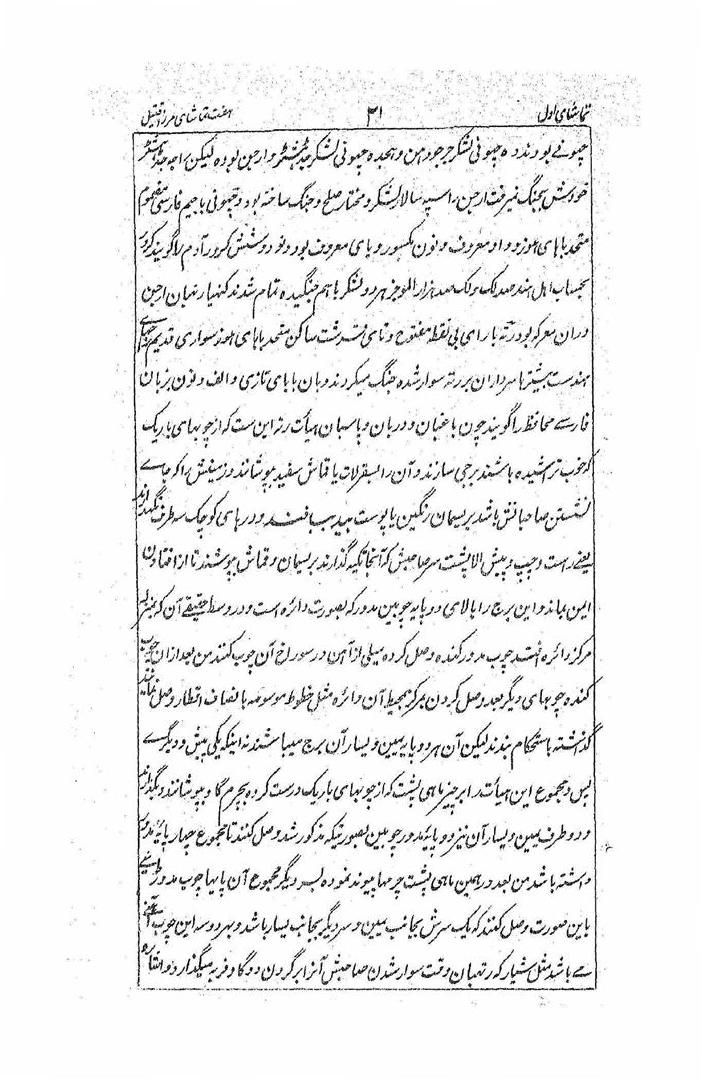 تماشای اول ۳۱ هفت تماشای مرزا قتیل
چھونی بودند ده چھونی لشکر جرجودهن و هجده چھونی لشکر جدهشتر و ارجن بوده لیکن راجه جدهشتر
خودش بجنگ نمیرفت ارجن را سپه سالار لشکر و مختار صلح و جنگ ساخته بود و چھونی با جیم فارسی مضموم
متحد باهای هوز و واو معروف و نون مکسور و یای معروف بود و نود و شش کرور آدم را گویند کرور
بحساب اهل هند صد لک و لک صد هزار الموجز هر دو لشکر با هم جنگیده تمام شدند کنهیا رتهبان ارجن
دران معرکه بود رته با رای بی نقطه مفتوح و تای قرشت ساکن متحد باهای هوز سواری قدیم
هندست بیشترها سرداران بر رته سوار شده جنگ میکردند و بان با بای تازی و الف و نون بزبان
فارسے محافظ را گویند چون باغبان و دربان و پاسبان هیأت رته این ست که از چوبهای باریک
که خوب تراشیده باشند برجی سازند و آن را بسقرلات یا قماش سفید بپوشانند و زمینش را که جاے
نشستن صاحبانش باشد بریسمان رنگین یا پوست بید ببافند و درهای کوچک سه طرف نگهدارند
یعنے راست و چپ و پیش الا پشت سر صاحبش که آنجا تکیه گذارند بریسمان و قماش بپوشند تا از افتادن
ایمن بماند و این برج را بالای دو پایه چوبین مدور که بصورت دائره است و در وسط حقیقے آن که بمنزله
مرکز دائره است چوب مدور کنده وصل کرده میلی از آهن در سوراخ آن چوب کنند من بعد ازان چوب
کنده چوبهای دیگر بعد وصل کردن بمرکز بمحیط آن دائره مثل خطوط موسومه بانصاف اقطار وصل نمایند
گذاشته باستحکام بندند لیکن آن هر دو پایه یمین و یسار آن برج میباشند نه اینکه یکی پیش و دیگرے
پس و مجموع این هیأت را بر چیز ماهی پشت که از چوبهای باریک درست کرده بچرم گاو بپوشانند بگذارند
و دو طرف یمین و یسار آن نیز دو پایۀ مدور چوبین بصورتیکه مذکور شد وصل کنند تا مجموع چهار پایۀ مدور
داشته باشد من بعد در همین ماهی پشت چرمها پیوند نموده بسر دیگر مجموع آن پایها چوب مدور
باین صورت وصل کنند که یک سرش بجانب یمین و سر دیگر بجانب یسار باشد و بهر دو سه این چوب
مے باشد مثل شیار که رتهبان وقت سوار شدن صاحبش آنرا بر گردن دو گاو فربه میگذارد و